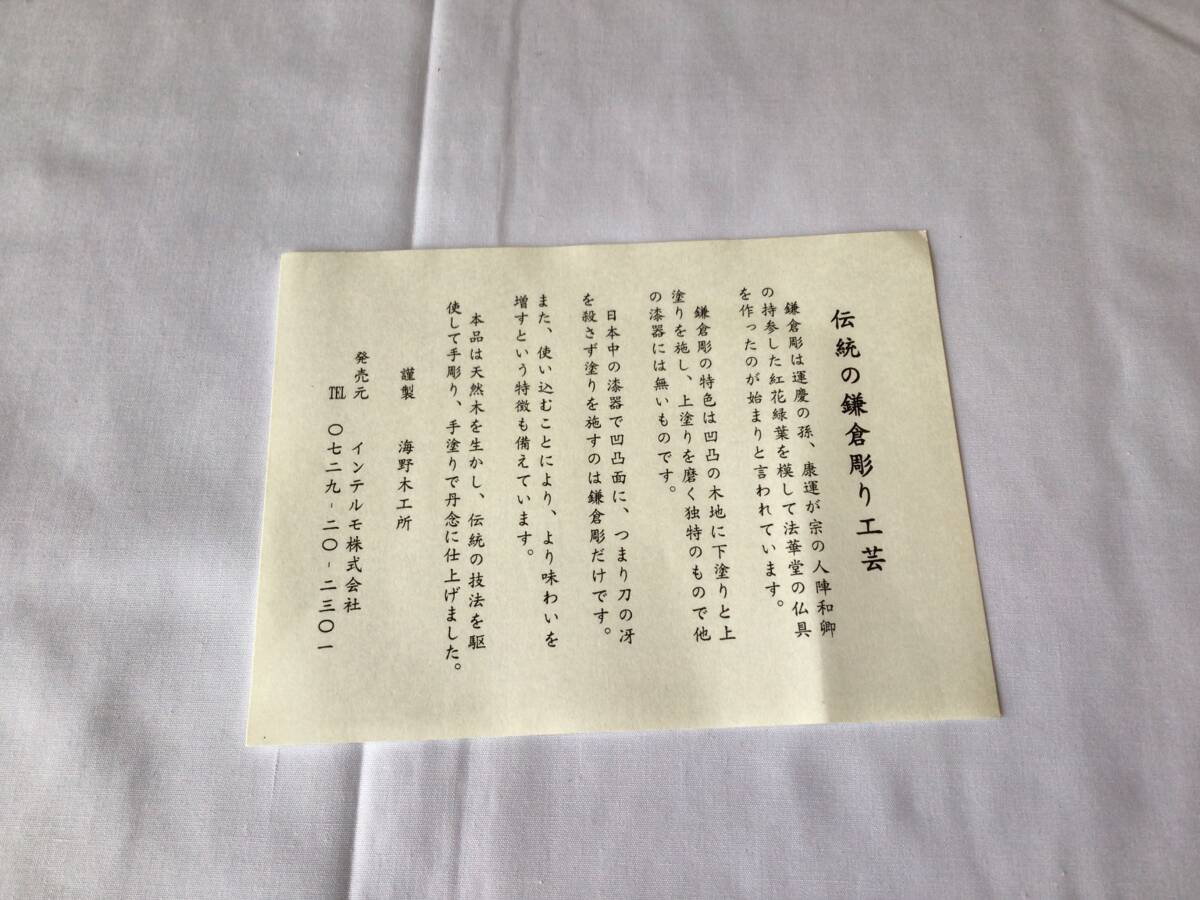 伝統の鎌倉彫り工芸
鎌倉彫は運慶の孫、康運が宗の人陣和卿
の持参した紅花緑葉を模して法華堂の仏具
を作ったのが始まりと言われています。
鎌倉彫の特色は凹凸の木地に下塗りと上
塗りを施し、上塗りを磨く独特のもので他
の漆器には無いものです。
日本中の漆器で凹凸面に、つまり刀の冴
を殺さず塗りを施すのは鎌倉彫だけです。
また、使い込むことにより、より味わいを
増すという特徴も備えています。
本品は天然木を生かし、伝統の技法を駆
使して手彫り、手塗りで丹念に仕上げました。
謹製 海野木工所
発売元 インテルモ株式会社
TEL 〇七二九-二〇-二三〇一